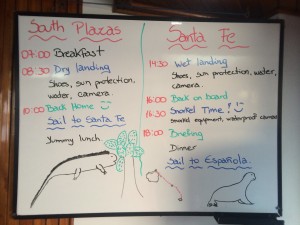 South Plazas
07:00 Breakfast
08:30 Dry landing
Shoes, sun protection,
water, camera.
10:00 Back Home
Sail to Santa Fe
Yummy lunch
Santa Fe
14:30 Wet landing
Shoes, sun protection, water,
camera.
16:00 Back on board
16:30 Snorkel Time!
Snorkel equipment, waterproof camera
18:00 Briefing
Dinner
Sail to Española.